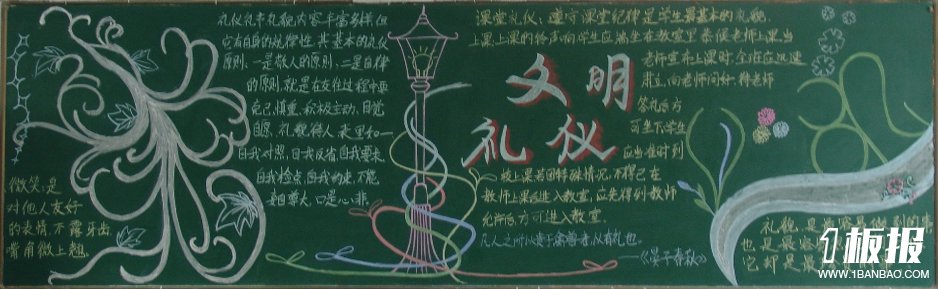 礼仪礼节礼貌内容丰富多样但
它有自身的规律性,其基本的礼仪
原则:一是敬人的原则;二是自律
的原则,就是在交往过程中要
克己、慎重、积极主动、自觉
自愿、礼貌待人、表里如一
自我对照,自我反省,自我要求
自我检点,自我约束,不能
妄自尊大,口是心非。
微笑,是
对他人友好
的表情,不露牙出
嘴角微上翘。
文明
礼仪
课堂礼仪:遵守课堂纪律是学生最基本的礼貌
上课:上课的铃声响学生应端坐在教室里恭候老师上课当
老师宣布上课时,全班应迅速
肃立,向老师问好,待老师
答礼后方
可坐下学生
应当准时到
校上课若因特殊情况,不得已在
教师上课后进入教室,应先得到教师
允许后,方可进入教室。
凡人之所以贵于禽兽者,以有礼也。
——《晏子春秋》
礼貌是最容易做到的事
也是最容
它却是最
1板报
WWW.1BANBAO.COM